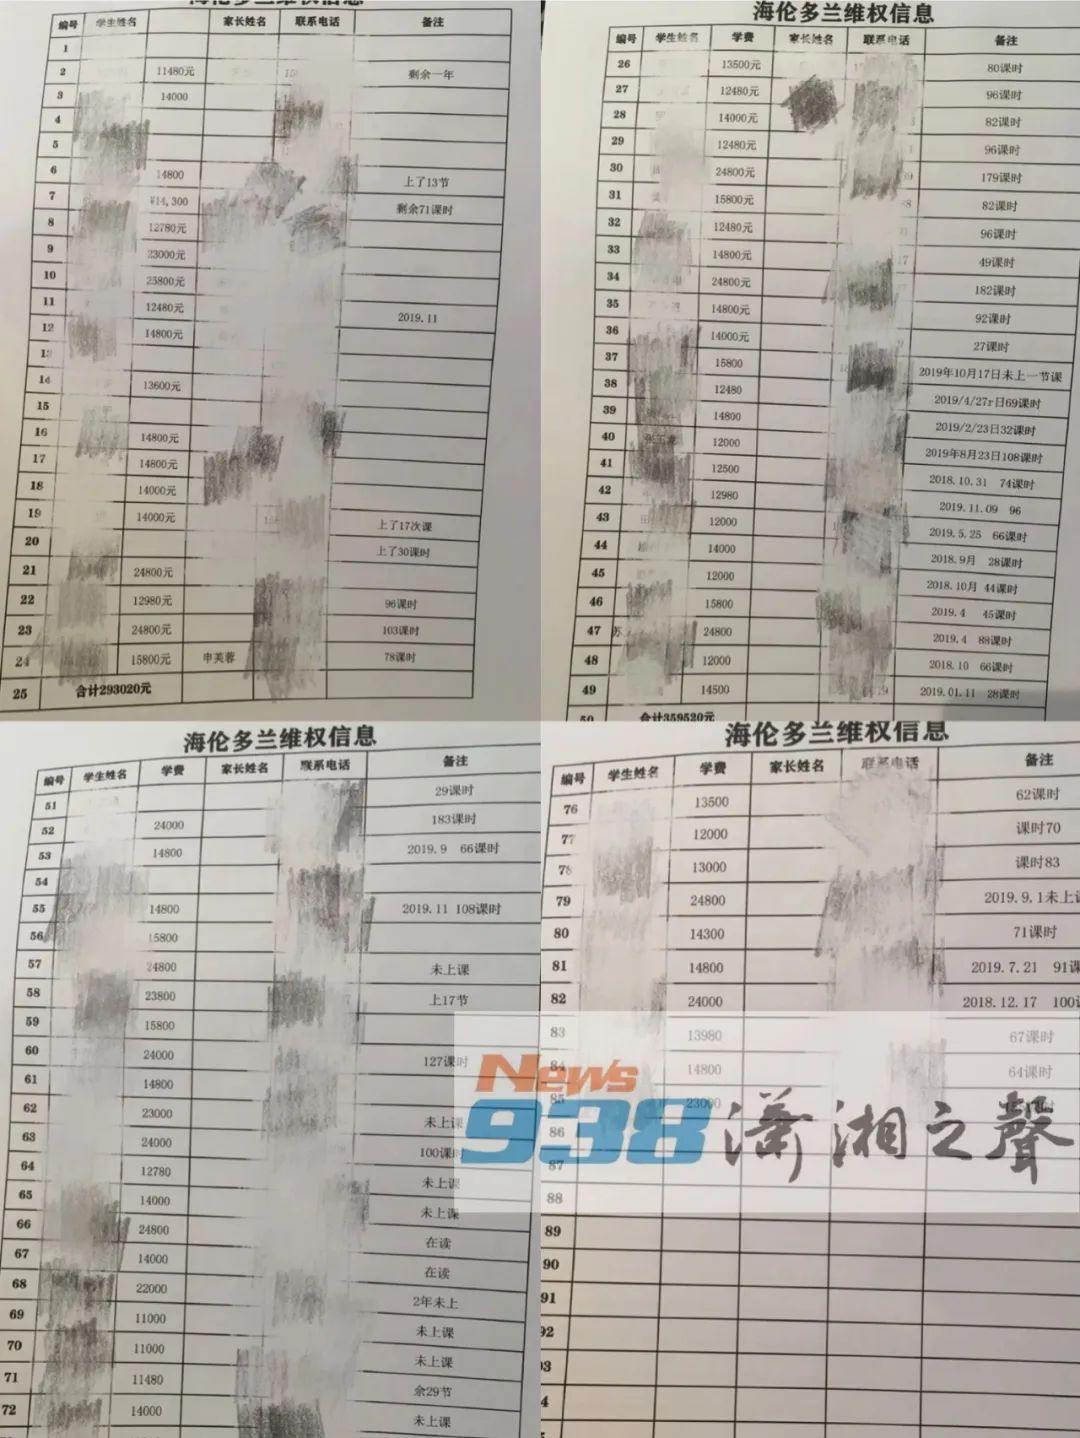 海伦多兰维权信息
编号 学生姓名 家长姓名 联系电话 备注
1
2 11480元 剩余一年
3 14000
4
5
6 14800 上了13节
7 ¥14,300 剩余71课时
8 12780元
9 23000元
10 25800元
11 12480元 2019.11
12 14800元
13
14 13600元
15
16 14800元
17 14800元
18 14000元
19 14000元 上了17次课
20 上了30课时
21 24800元
22 12980元 96课时
23 24800元 103课时
24 15800元 申芙蓉 78课时
25 合计293020元
海伦多兰维权信息
编号 学生姓名 学费 家长姓名 联系电话 备注
26 13500元 80课时
27 12480元 96课时
28 14000元 82课时
29 12480元 96课时
30 24800元 179课时
31 15800元 82课时
32 12480元 96课时
33 14800元 49课时
34 24800元 182课时
35 14800元 92课时
36 14000元 27课时
37 15800 2019年10月17日未上一节课
38 12480 2019/4/27r日69课时
39 14800 2019/2/23日32课时
40 12000 2019年8月23日108课时
41 12500 2018.10.31 74课时
42 12980 2019.11.09 96
43 12000 2019.5.25 66课时
44 14000 2018.9月 28课时
45 12000 2018.10月 44课时
46 15800 2019.4 45课时
47 苏 24800 2019.4 88课时
48 12000 2018.10 66课时
49 14500 2019.01.11 28课时
50 合计359520元
海伦多兰维权信息
编号 学生姓名 学费 家长姓名 联系电话 备注
51 29课时
52 24000 183课时
53 14800 2019.9 66课时
54
55 14800 2019.11 108课时
56 15800
57 24800 未上课
58 23800 上17节
59 15800
60 24000 127课时
61 14800
62 23000 未上课
63 24000 100课时
64 12780 未上课
65 14000 未上课
66 24800 在读
67 14000 在读
68 22000 2年未上
69 11000 未上课
70 11000 未上课
71 11480 余29节
72 14000 未上课
海伦多兰维权信息
编号 学生姓名 学费 家长姓名 联系电话 备注
76 13500 62课时
77 12000 课时70
78 13000 课时83
79 24800 2019.9.1未上
80 14300 71课时
81 14800 2019.7.21 91课
82 24000 2018.12.17 100
83 13980 67课时
84 14800 64课时
85 23000
86
87
88
89
90
91
92
93
News 938 潇湘之聲